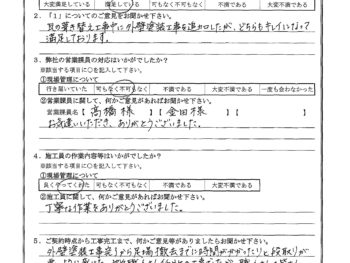 大変満足している 満足している 可もなく不可もなく 不満である 大変不満である
2．「1」についてのご意見をお聞かせ下さい。
工事中に外壁塗装工事を追加したが、どちらもキレイになって
満足しております。
3．弊社の営業課員の対応はいかがでしたか？
※該当する項目に○を記入して下さい。
①現場管理について
行き届いていた 可もなく不可もなく 不満である 大変不満である 一度も会わなかった
②営業課員に関して、何かご意見があればお聞かせ下さい。
営業課員名【 高橋様 】【 金田様 】【
お気遣いいただき、ありがとうございました。
4．施工員の作業内容等はいかがでしたか？
※該当する項目に○を記入して下さい。
①現場管理について
良くやってくれた 可もなく不可もなく 不満である 大変不満である
②施工員に関して、何かご意見があればお聞かせ下さい。
丁寧な作業をありがとうございました。
5．ご契約時点から工事完工まで、何かご意見等がありましたらお聞かせ下さい。
外壁塗装工事完了から足場撤去までに時間がかかったりと段取りが